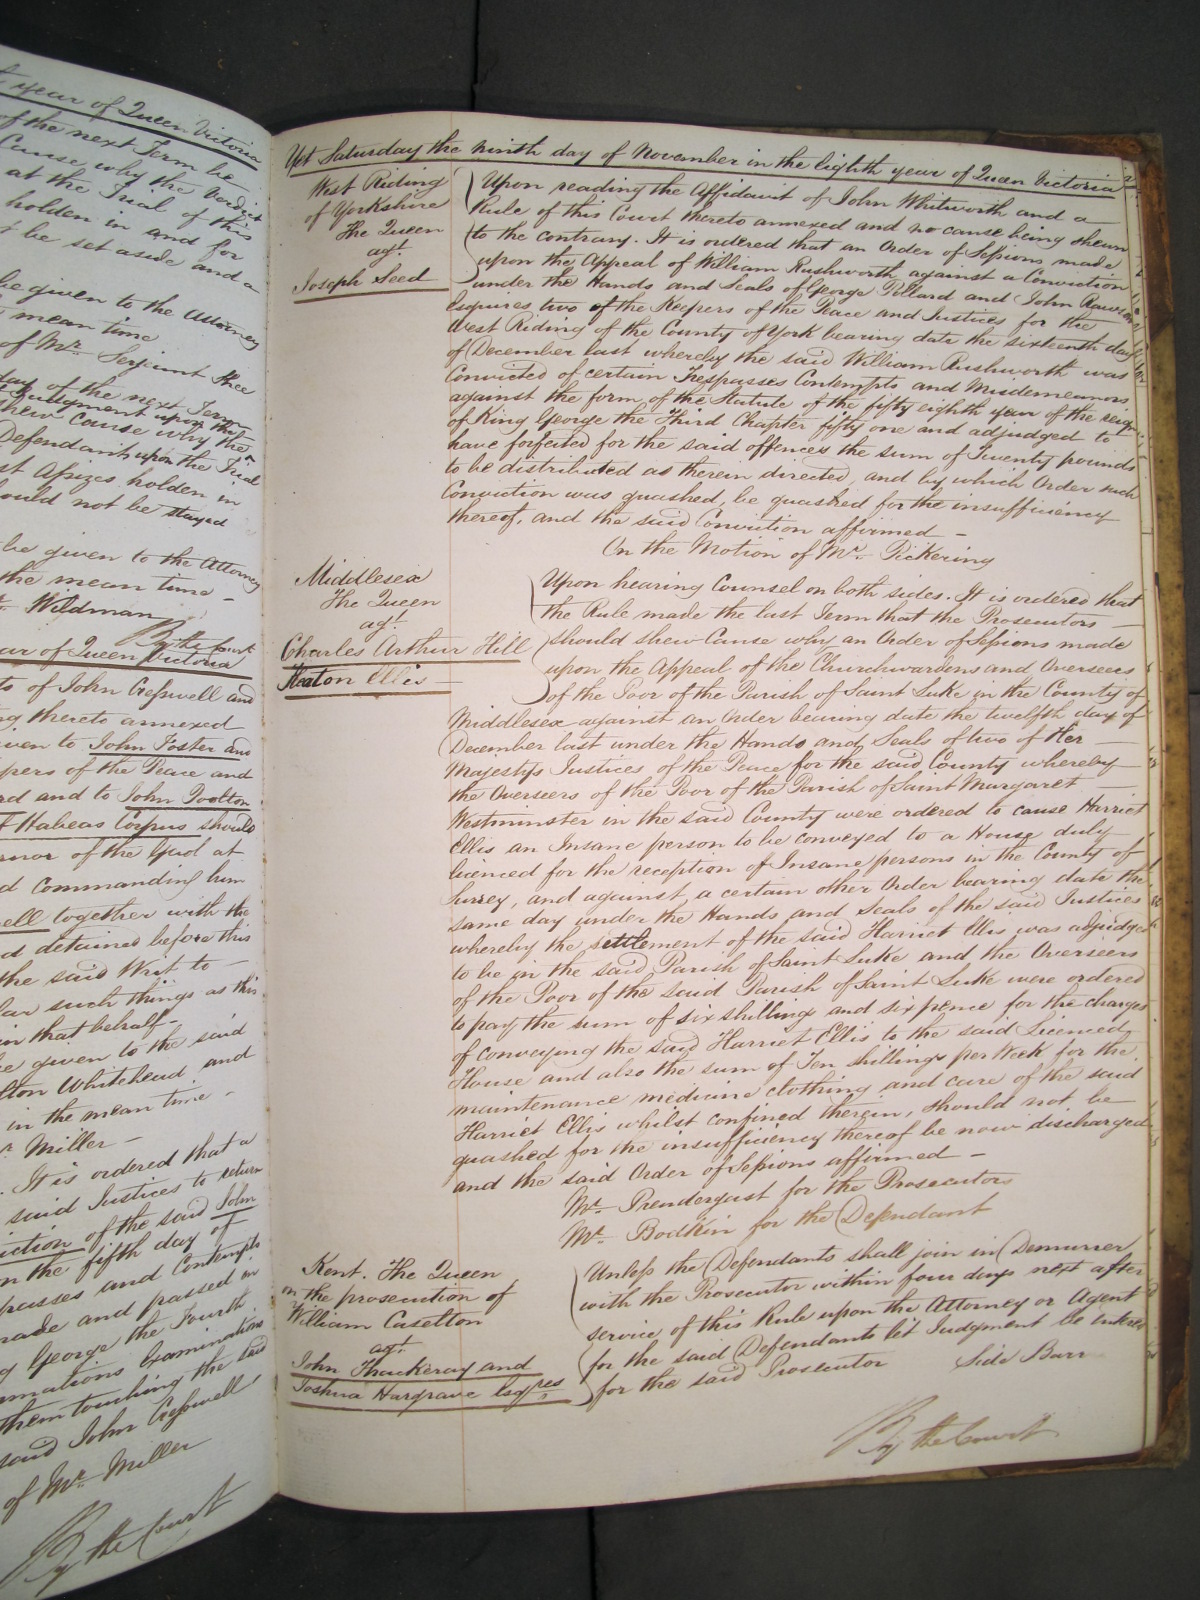 year of Queen Victoria
of the next Term be
Cause why the Verdict
at the Trial of this
holden in and for
t be set aside and a
be given to the Attorney
mean time
of Mr. Serjeant Shee
day of the next Term
Judgment upon the
shew Cause why the
Defendant upon the Trial
st Assizes holden in
ould not be stayed
be given to the Attorney
the mean time -
Wildman
By the Court
ear of Queen Victoria
ts of John Cresswell and
g thereto annexed
iven to John Foster and
pers of the Peace and
rd and to John Joolton
f Habeas Corpus should
ernor of the Gaol at
d commanding him
ell together with the
d detained before this
the said Writ to -
lar such things as this
in that behalf -
be given to the said
lton Whitehead and
in the mean time -
r Miller -
. It is ordered that a
said Justices to return
iction of the said John
n the fifth day of
passes and Contempts
made and passed in
g George the Fourth
mations Examinations
them touching the said
said John Cresswell
of Mr. Miller
By the Court
Yet Saturday the ninth day of November in the eighth year of Queen Victoria
West Riding
of Yorkshire
The Queen
agt.
Joseph Seed
Upon reading the Affidavit of John Whitworth and a
Rule of this Court thereto annexed and no cause being shewn
to the contrary. It is ordered that an Order of Sessions made
upon the Appeal of William Rushworth against a Conviction
under the Hands and Seals of George Pollard and John Rawson
Esquires two of the Keepers of the Peace and Justices for the
West Riding of the County of York bearing date the sixteenth day
of December last whereby the said William Rushworth was
Convicted of certain Trespasses Contempts and Misdemeanors
against the form of the Statute of the fifty eighth year of the reign
of King George the Third Chapter fifty one and adjudged to
have forfeited for the said offences the sum of Twenty pounds
to be distributed as therein directed, and by which Order such
Conviction was quashed, be quashed for the insufficiency
thereof, and the said Conviction affirmed -
On the Motion of Mr. Pickering
Middlesex
The Queen
agt.
Charles Arthur Hill
Heaton Ellis -
Upon hearing Counsel on both sides. It is ordered that
the Rule made the last Term that the Prosecutors -
should shew Cause why an Order of Sessions made
upon the Appeal of the Churchwardens and Overseers
of the Poor of the Parish of Saint Luke in the County of
Middlesex against an Order bearing date the twelfth day of
December last under the Hands and Seals of two of Her -
Majesty's Justices of the Peace for the said County whereby
the Overseers of the Poor of the Parish of Saint Margaret -
Westminster in the said County were ordered to cause Harriet
Ellis an Insane person to be conveyed to a House duly
licenced for the reception of Insane persons in the County of
Surrey, and against, a certain other Order bearing date the
same day under the Hands and Seals of the said Justices
whereby the settlement of the said Harriet Ellis was adjudged
to be in the said Parish of Saint Luke and the Overseers
of the Poor of the said Parish of Saint Luke were ordered
to pay the sum of six shillings and six pence for the charges
of conveying the said Harriet Ellis to the said Licenced
House and also the sum of Ten shillings per Week for the
maintenance medicine clothing and care of the said
Harriet Ellis whilst confined therein, should not be
quashed for the insufficiency thereof be now discharged
and the said Order of Sessions affirmed -
Mr. Prendergast for the Prosecutors
Mr. Bodkin for the Defendant
Kent. The Queen
on the prosecution of
William Caselton
agt.
John Thackeray and
Joshua Hargrave Esqres
Unless the Defendants shall join in Demurrer
with the Prosecutor within four days next after
service of this Rule upon the Attorney or Agent
for the said Defendants let Judgment be entered
for the said Prosecutor Side Barr
By the Court